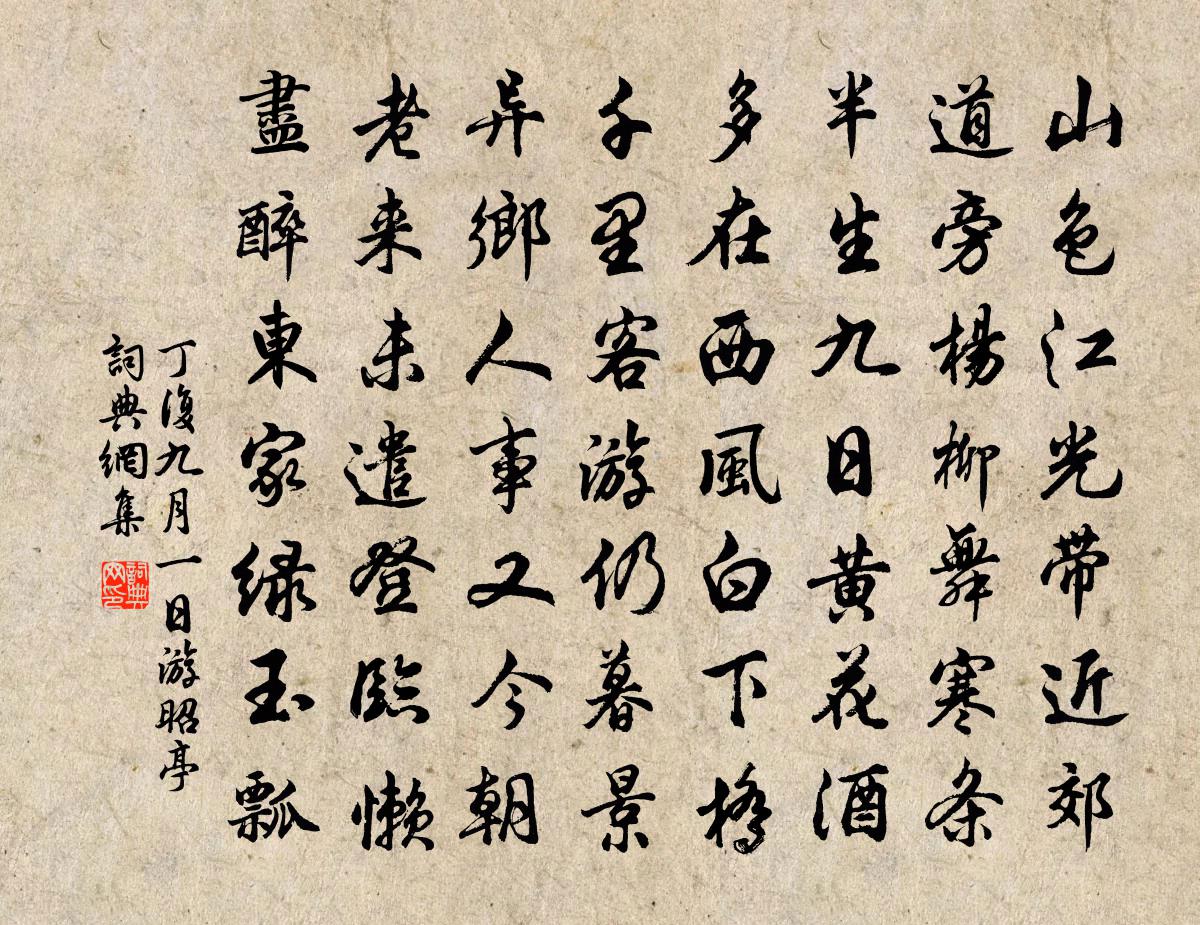 山色江光帶近郊
道旁楊柳舞寒条
半生九日黄花酒
多在西風白下橋
千里客游仍暮景
异鄉人事又今朝
老来未遣登臨懒
盡醉東家緑玉瓢
丁復九月一日游昭亭
詞典網集
詞典网印